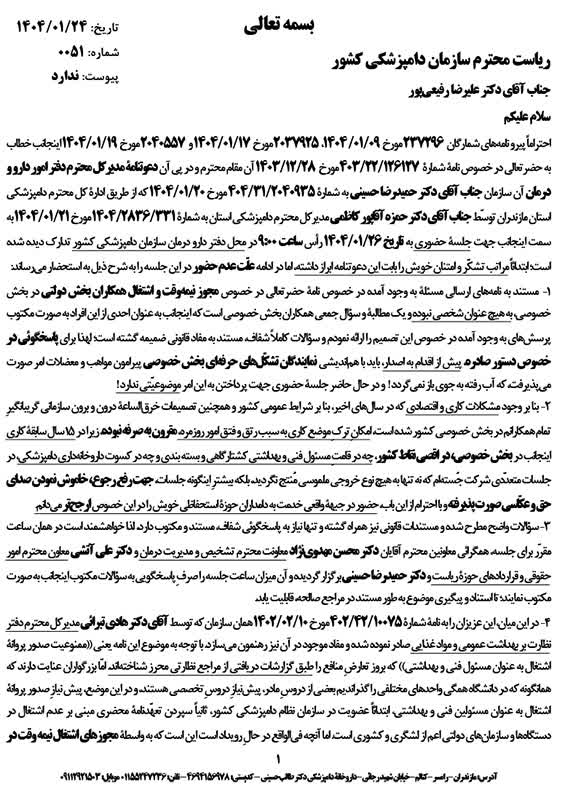 بسمه تعالی
تاریخ: ۱۴۰۴/۰۱/۲۴
شماره: ۰۰۵۱
پیوست: ندارد
ریاست محترم سازمان دامپزشکی کشور
جناب آقای دکتر علیرضا رفیعی‌پور
سلام علیکم
احتراماً پیرو نامه‌های شمارگان ۲۳۷۲۹۶ مورخ ۱۴۰۴/۰۱/۰۹، ۲۰۳۷۹۲۵ مورخ ۱۴۰۴/۰۱/۱۷ و ۲۰۴۰۵۵۷ مورخ ۱۴۰۴/۰۱/۱۹ اینجانب خطاب
به حضرتعالی در خصوص نامهٔ شمارهٔ ۴۰۳/۲۲/۱۲۶۱۲۷ مورخ ۱۴۰۳/۱۲/۲۸ آن مقام محترم و در پی آن دعوتنامهٔ مدیرکل محترم دفتر امور دارو و
درمان آن سازمان جناب آقای دکتر حمیدرضا حسینی به شمارهٔ ۴۰۴/۳۱/۲۰۴۰۹۳۵ مورخ ۱۴۰۴/۰۱/۲۰ که از طریق ادارهٔ کل محترم دامپزشکی
استان مازندران توسّط جناب آقای دکتر حمزه آقاپور کاظمی مدیرکل محترم دامپزشکی استان به شمارهٔ ۱۴۰۴/۲۸۳۶/۳۳۱ مورخ ۱۴۰۴/۰۱/۲۱ به
سمت اینجانب جهت جلسهٔ حضوری به تاریخ ۱۴۰۴/۰۱/۲۶ رأس ساعت ۹:۰۰ در محل دفتر دارو درمان سازمان دامپزشکی کشور تدارک دیده شده
است؛ ابتدائاً مراتب تشکّر و امتنان خویش را بابت این دعوتنامه ابراز داشته، اما در ادامه علّت عدم حضور در این جلسه را به شرح ذیل به استحضار می‌رساند:
۱- مستند به نامه‌های ارسالی مسئلهٔ به وجود آمده در خصوص نامهٔ حضرتعالی در خصوص مجوز نیمه‌وقت و اشتغال همکاران بخش دولتی در بخش
خصوصی، به هیچ عنوان شخصی نبوده و یک مطالبه و سؤال جمعی همکاران بخش خصوصی است که اینجانب به عنوان احدی از این افراد به صورت مکتوب
پرسش‌های به وجود آمده در خصوص این تصمیم را ارائه نمودم و سؤالات کاملاً شفاف، مستند به مفاد قانونی ضمیمه گشته است؛ لهذا برای پاسخگوئی در
خصوص دستور صادره، پیش از اقدام به اصدار، باید با هم‌اندیشی نمایندگان تشکّل‌های حرفه‌ای بخش خصوصی پیرامون مواهب و معضلات امر صورت
می‌پذیرفت، که آب رفته به جوی باز نمی‌گردد! و در حال حاضر جلسهٔ حضوری جهت پرداختن به این امر موضوعیّتی ندارد!
۲- بنا بر وجود مشکلات کاری و اقتصادی که در سال‌های اخیر، بنا بر شرایط عمومی کشور و همچنین تصمیمات خرق‌الساعهٔ درون و برون سازمانی گریبانگیر
تمام همکارانم در بخش خصوصی کشور شده است، امکان ترک موضع کاری به سبب رتق و فتق امور روزمره، مقرون به صرفه نبوده، زیرا در ۱۵ سال سابقهٔ کاری
اینجانب در بخش خصوصی، در اقصی نقاط کشور، چه در قامت مسئول فنی و بهداشتی کشتارگاهی و بسته بندی و چه در کسوت داروخانه‌داری دامپزشکی، در
جلسات متعدّدی شرکت جسته‌ام که نه تنها به هیچ نوع خروجی ملموسی مُنتج نگردید، بلکه بیشتر اینگونه جلسات، جهت رفع رجوع، خاموش نمودن صدای
حق و عکّاسی صورت پذیرفته و با احترام از این باب، حضور در جبههٔ واقعی خدمت به دامداران حوزهٔ استحفاظی خویش را در این خصوص ارجح‌تر می‌دانم.
۳- سؤالات واضح مطرح شده و مستندات قانونی نیز همراه گشته و تنها نیاز به پاسخگوئی شفاف، مستند و مکتوب دارد، لذا خواهشمند است در همان ساعت
مقرّر برای جلسه، همگرائی معاونین محترم آقایان دکتر محسن مهدوی‌نژاد معاونت محترم تشخیص و مدیریت درمان و دکتر علی آتشی معاون محترم امور
حقوقی و قراردادهای حوزهٔ ریاست و دکتر حمیدرضا حسینی برگزار گردیده و آن میزان ساعت جلسه را صرف پاسخگویی به سؤالات مکتوب اینجانب به صورت
مکتوب نمایند؛ تا استناد و پیگیری موضوع به طور مستند در مراجع صالحه، قابلیت یابد.
۴- در این میان، این عزیزان را به نامهٔ شمارهٔ ۴۰۲/۴۲/۱۰۰۷۵ مورخ ۱۴۰۲/۰۲/۱۰ همان سازمان که توسط آقای دکتر هادی تیرانی مدیرکل محترم دفتر
نظارت بر بهداشت عمومی و مواد غذایی صادر نموده شده و مفاد موجود در آن نیز رهنمون می‌سازد، با توجه به موضوع این نامه یعنی ((ممنوعیت صدور پروانهٔ
اشتغال به عنوان مسئول فنی و بهداشتی)) که بروز تعارض منافع را طبق گزارشات دریافتی از مراجع نظارتی محرز شناخته‌اند، امّا بزرگواران عنایت دارند که
همانگونه که در دانشگاه همگی واحدهای مختلفی را گذراندیم بعضی از دروس مادر، پیش‌نیاز دروس تخصصی هستند، و در این موضع، پیش‌نیاز صدور پروانهٔ
اشتغال به عنوان مسئولین فنی و بهداشتی، ابتدائاً عضویت در سازمان نظام دامپزشکی کشور، ثانیاً سپردن تعهّدنامهٔ محضری مبنی بر عدم اشتغال در
دستگاه‌ها و سازمان‌های دولتی اعم از لشگری و کشوری است، اما آنچه فی‌الواقع در حال رویداد است این است که به واسطهٔ مجوزهای اشتغال نیمه وقت در
۱
آدرس: مازندران - رامسر - کتالم - خیابان شهید رجائی - داروخانهٔ دامپزشکی دکتر طالب حسینی - کدپستی: ۴۶۹۴۱۵۶۹۷۸ - تلفن: ۰۱۱۵۵۲۴۷۲۳۶ موبایل: ۰۹۱۱۲۹۲۱۵۰۳